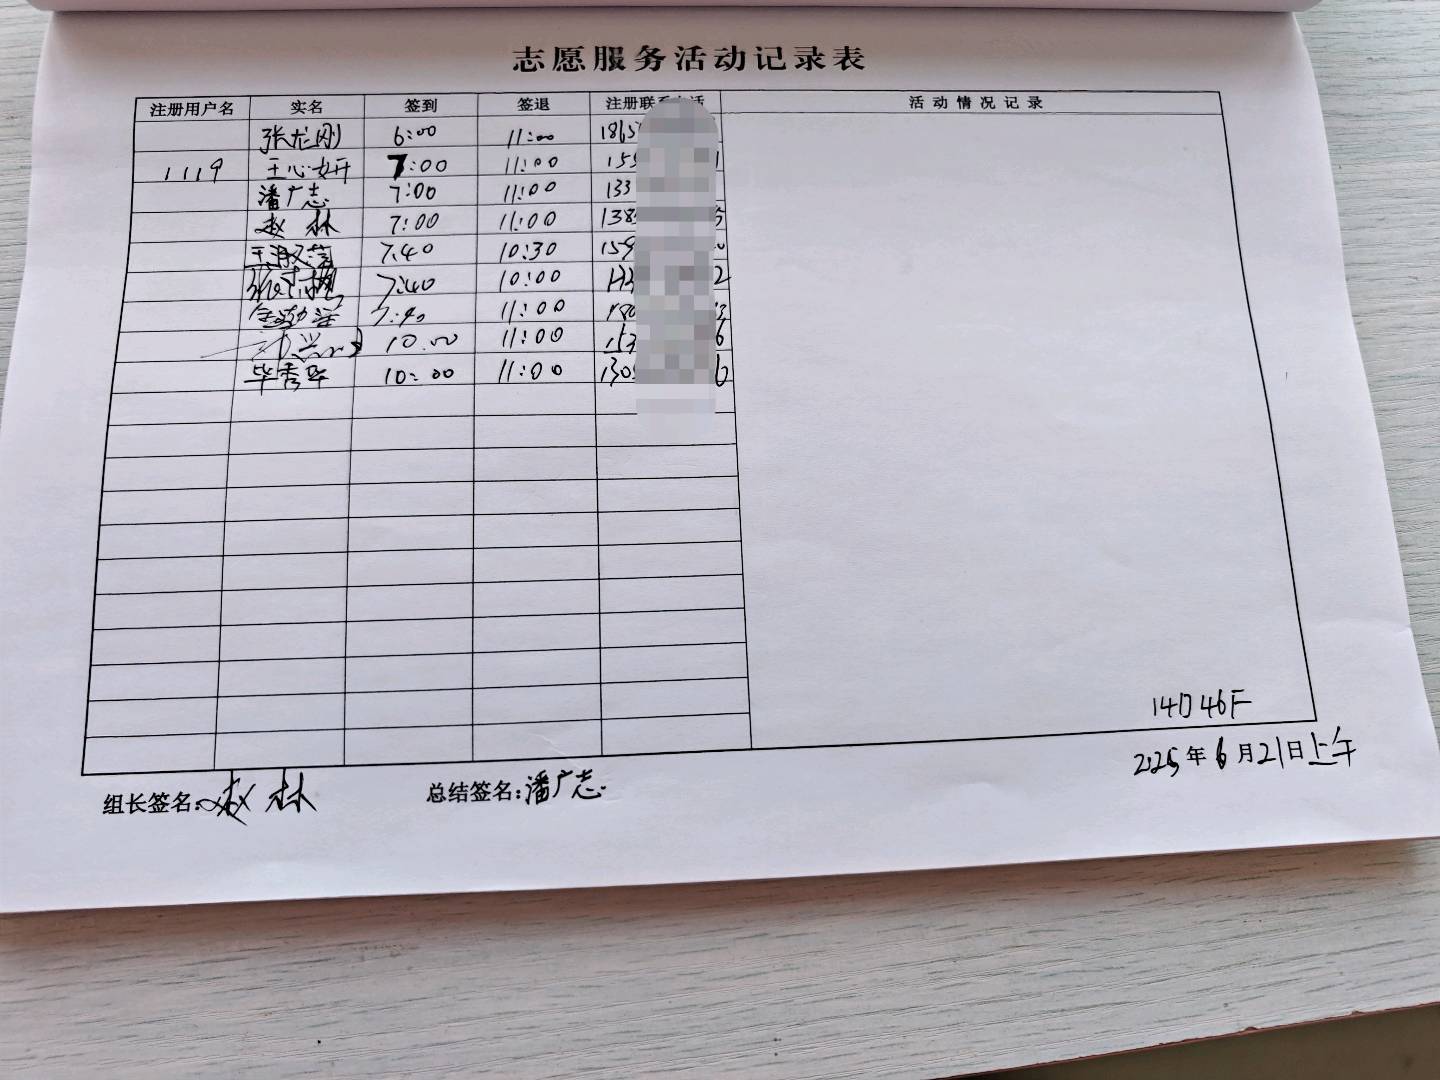 志愿服务活动记录表
注册用户名 实名 签到 签退 注册联系电话 活动情况记录
张龙刚 6:00 11:00 1865
1119 王心妍 7:00 11:00 155 1
潘广志 7:00 11:00 133
赵林 7:00 11:00 138 5
王淑 7:40 10:30 159
张 7:40 10:00 133 2
7:40 11:00 180 3
10:00 11:00 153 6
毕秀华 10:00 11:00 130 6
14口46F
2025年6月21日上午
组长签名:赵林 总结签名:潘广志